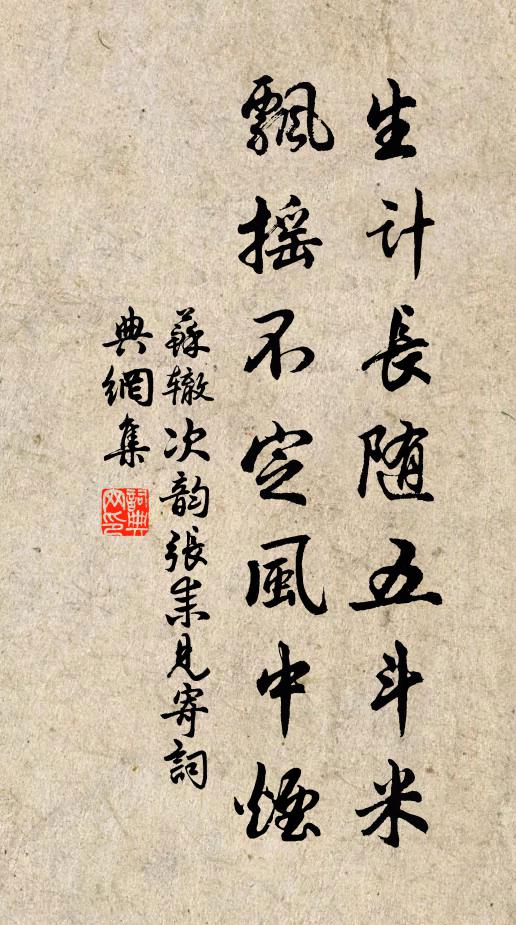 生计長随五斗米
飄摇不定風中煙
蘇辙次韵張耒見寄詞
典網集
詞典网印